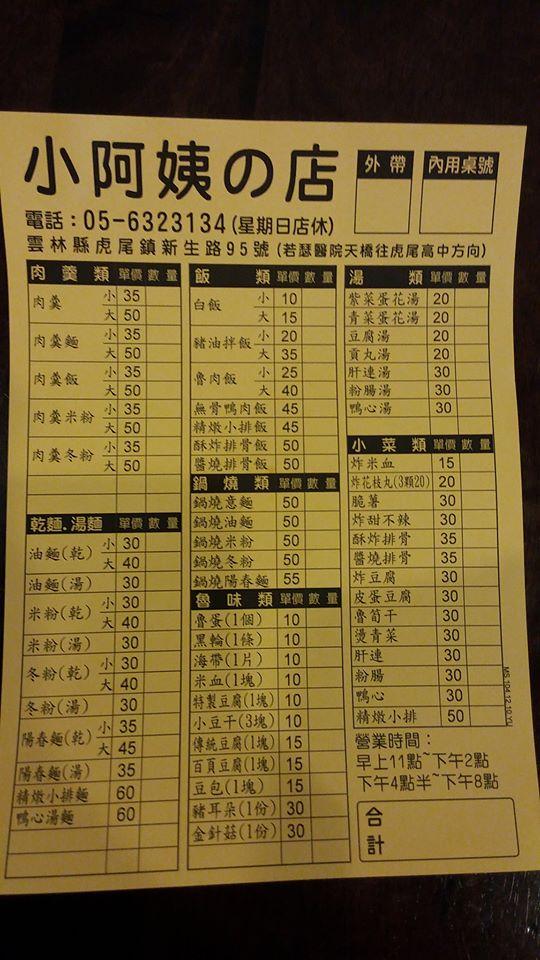 小阿姨の店
外帶
內用桌號
電話：05-6323134(星期日店休)
雲林縣虎尾鎮新生路95號(若瑟醫院天橋往虎尾高中方向)
肉羹類 單價 數量
肉羹 小 35
大 50
肉羹麵 小 35
大 50
肉羹飯 小 35
大 50
肉羹米粉 小 35
大 50
肉羹冬粉 小 35
大 50
乾麵.湯麵 單價 數量
油麵(乾) 小 30
大 40
油麵(湯) 30
米粉(乾) 小 30
大 40
米粉(湯) 30
冬粉(乾) 小 30
大 40
冬粉(湯) 30
陽春麵(乾) 小 35
大 45
陽春麵(湯) 35
精燉小排麵 60
鴨心湯麵 60
飯類 單價 數量
白飯 小 10
大 15
豬油拌飯 小 20
大 35
魯肉飯 小 25
大 40
無骨鴨肉飯 45
精燉小排飯 45
酥炸排骨飯 50
醬燒排骨飯 50
鍋燒類 單價 數量
鍋燒意麵 50
鍋燒油麵 50
鍋燒米粉 50
鍋燒冬粉 50
鍋燒陽春麵 55
魯味類 單價 數量
魯蛋(1個) 10
黑輪(1條) 10
海帶(1片) 10
米血(1塊) 10
特製豆腐(1塊) 10
小豆干(3塊) 10
傳統豆腐(1塊) 15
百頁豆腐(1塊) 15
豆包(1塊) 15
豬耳朵(1份) 30
金針菇(1份) 30
湯類 單價 數量
紫菜蛋花湯 20
青菜蛋花湯 20
豆腐湯 20
貢丸湯 20
肝連湯 30
粉腸湯 30
鴨心湯 30
小菜類 單價 數量
炸米血 15
炸花枝丸(3顆20) 20
脆薯 30
炸甜不辣 30
酥炸排骨 35
醬燒排骨 35
炸豆腐 30
皮蛋豆腐 30
魯筍干 30
燙青菜 30
肝連 30
粉腸 30
鴨心 30
精燉小排 50
MS 104.12.10.YU
營業時間：
早上11點~下午2點
下午4點半~下午8點
合計